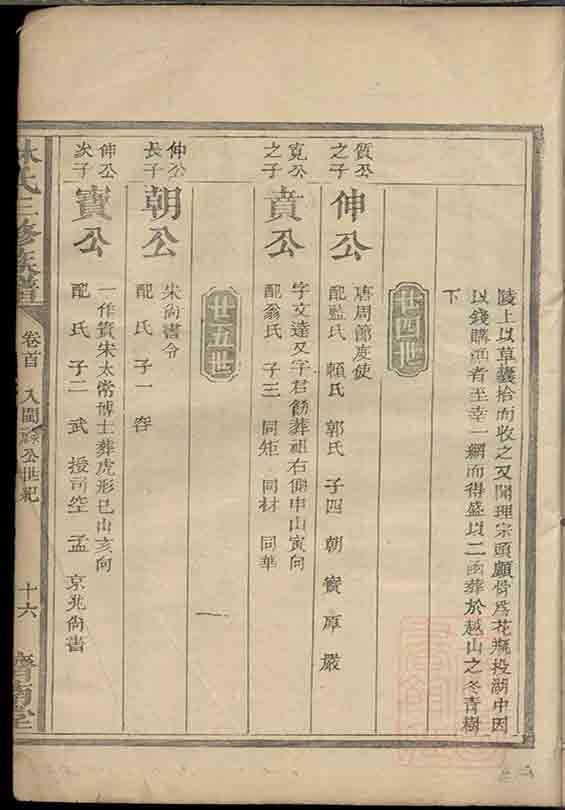 陵上以草囊拾而收之又聞理宗頭顱骨爲花瓶投湖中因
以錢購漁者至幸一網而得盛以二函葬於越山之冬青樹
下
廿四世
質公之子
伸公
唐周節度使
配監氏 賴氏 郭氏 子四 朝 寶 厚 嚴
寬公之子
賁公
字文達又字君飾葬祖右側申山寅向
配翁氏 子三 同矩 同材 同華
廿五世
伸公長子
朝公
宋尚書令
配氏 子一 容
伸公次子
寶公
一作實宋太常博士葬虎形巳山亥向
配氏 子二 武 授司空 孟 京兆尚書
林氏三修族譜
卷首
入閩 公世紀
十六
濟南堂